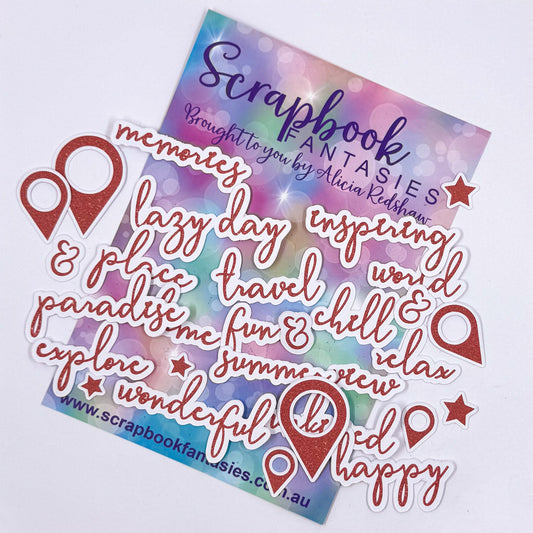 Scrapbook
FANTASIES
Brought to you by Alicia Redshaw
memories
lazy day
inspiring
& place
travel
world
paradise
me
fun & chill &
explore
summer
view
relax
wonderful
happy
www.scrapbookfantasies.com.au